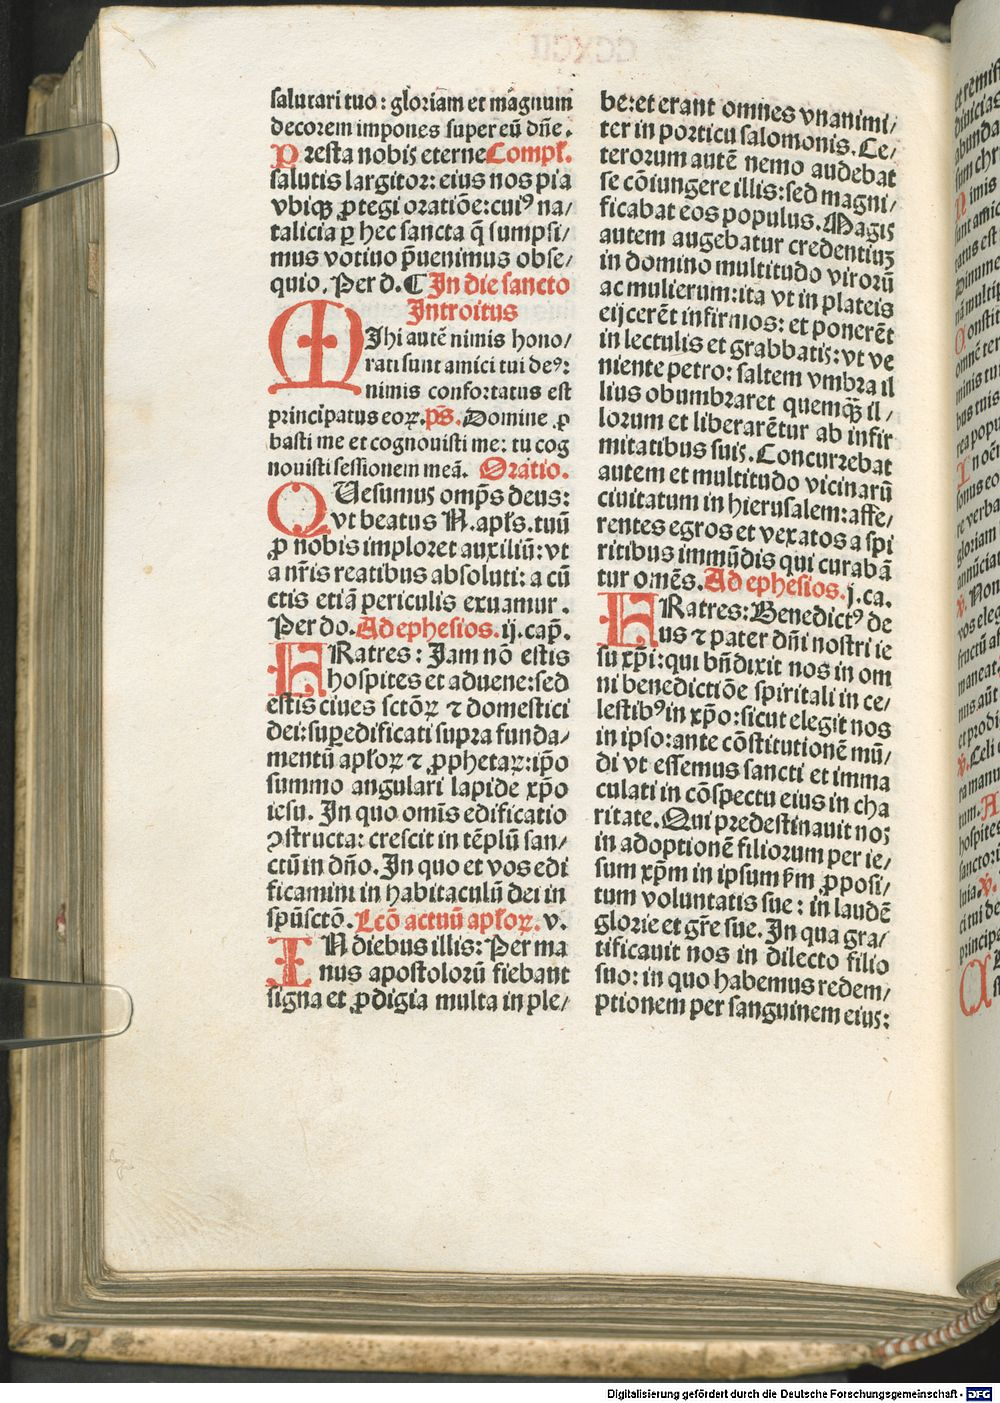 salutari tuo : gloriam et magnum
decorem impones super eū dn̄e.
Presta nobis eterne Compl̄.
salutis largitor: eius nos pia
vbiqꝫ ꝓtegi oratiōe:cuiꝰ na/
talicia ꝑ hec sancta q̄ sumpsi/
mus votiuo p̄uenimus obse/
quio. Per d. ⸿ In die sancto
Introitus
MIhi autē nimis hono/
rati sunt amici tui deꝰ:
nimis confortatus est
principatus eoꝝ. ps̄. Domine ꝓ
basti me et cognouisti me: tu cog
nouisti sessionem meā. Oratio.
QUesumus omp̄s deus:
vt beatus N. apl̄s. tuū
ꝓ nobis imploret auxiliū: vt
a nr̄is reatibus absoluti: a cū
ctis etiā periculis exuamur.
Per do. Ad ephesios. ij. cap̄.
FRatres: Iam nō estis
hospites et aduene:sed
estis ciues sctōꝝ ⁊ domestici
dei:suꝑedificati supra funda/
mentū apl̄oꝝ ⁊ ꝓphetaꝝ:ip̄o
summo angulari lapide xp̄o
iesu. In quo omīs edificatio
ꝯstructa: crescit in tēplū san/
ctū in dn̄o. In quo et vos edi
ficamini in habitaculū dei in
spūsctō. Lcō actuū apl̄oꝝ. v.
IN diebus illis: Per ma
nus apostolorū fiebant
signa et ꝓdigia multa in ple/
be:et erant omnes vnanimi/
ter in porticu salomonis. Ce/
terorum autē nemo audebat
se cōiungere illis:sed magni/
ficabat eos populus. Magis
autem augebatur credentiuꝫ
in domino multitudo virorū
ac mulierum:ita vt in plateis
eijcerēt infirmos: et ponerēt
in lectulis et grabbatis:vt ve
niente petro: saltem vmbra il
lius obumbraret quemqꝫ il/
lorum et liberarētur ab infir
mitatibus suis. Concurrebat
autem et multitudo vicinarū
ciuitatum in hierusalem:affe/
rentes egros et vexatos a spi
ritibus immūdis qui curabā
tur omēs. Ad ephesios. j. ca.
FRatres: Benedictꝰ de
us ⁊ pater dn̄i nostri ie
su xp̄i:qui bn̄dixit nos in om
ni benedictiōe spiritali in ce/
lestibꝰ in xp̄o:sicut elegit nos
in ipso:ante cōstitutionē mū/
di vt essemus sancti et imma
culati in cōspectu eius in cha
ritate. Qui predestinauit nos
in adoptionē filiorum per ie/
sum xp̄m in ipsum ꝓposi/
tum voluntatis sue: in laudē
glorie et gr̄e sue. In qua gra/
tificauit nos in dilecto filio
suo: in quo habemus redem/
ptionem per sanguinem eius:
Digitalisierung gefördert durch die Deutsche Forschungsgemeinschaft - DFG